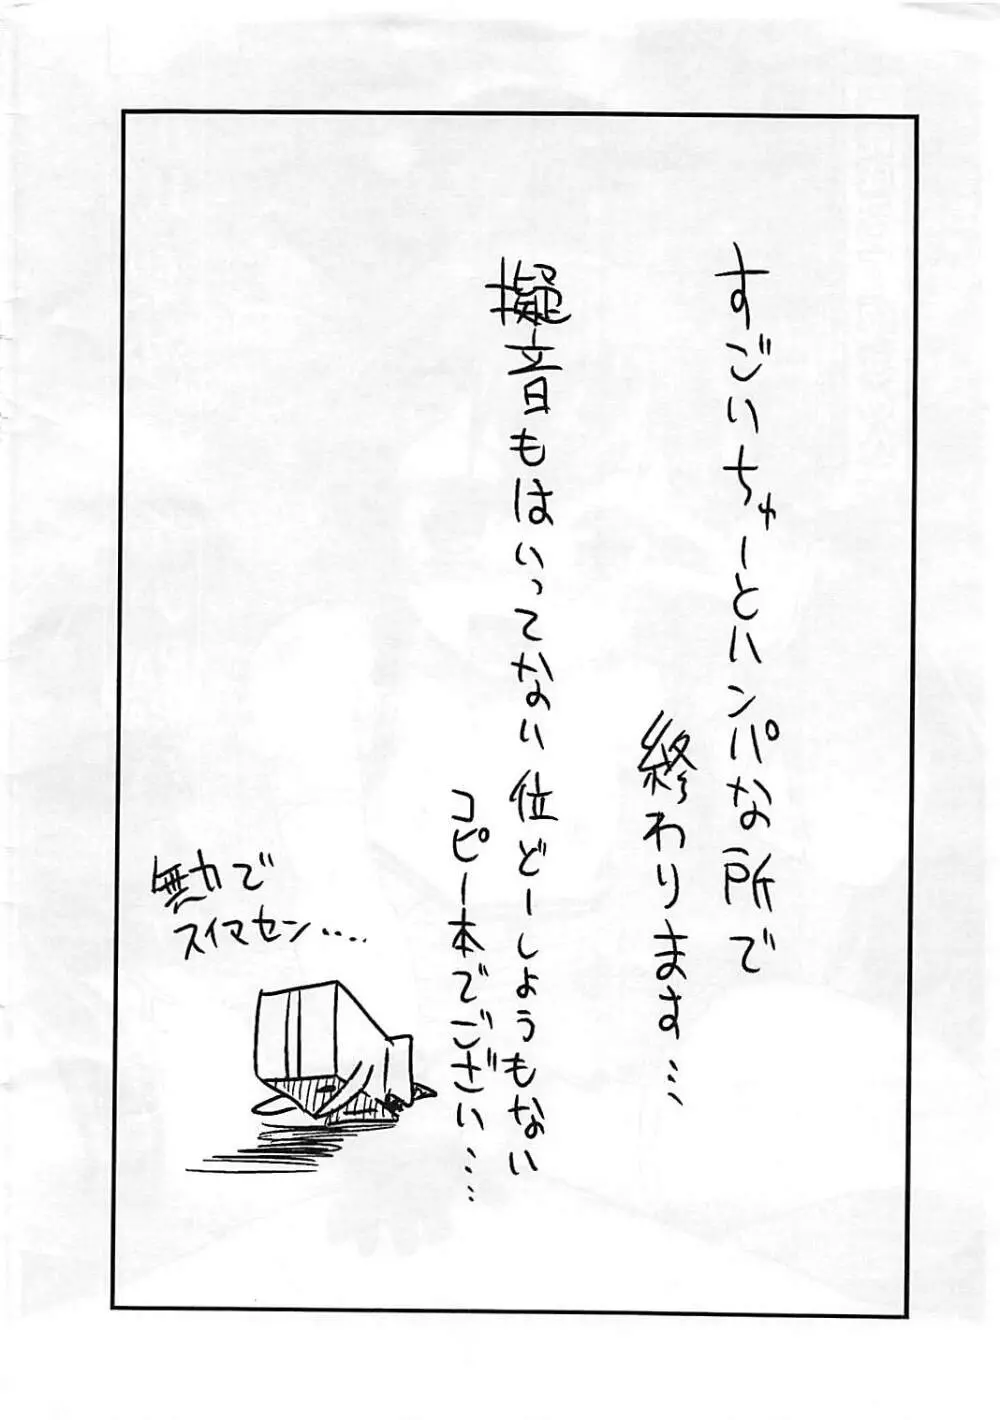 すごいちゅーとハンパな所で
終わります…
擬音もはいってない位どーしょうもない
コピー本でござい…
無力で
スイマセン….